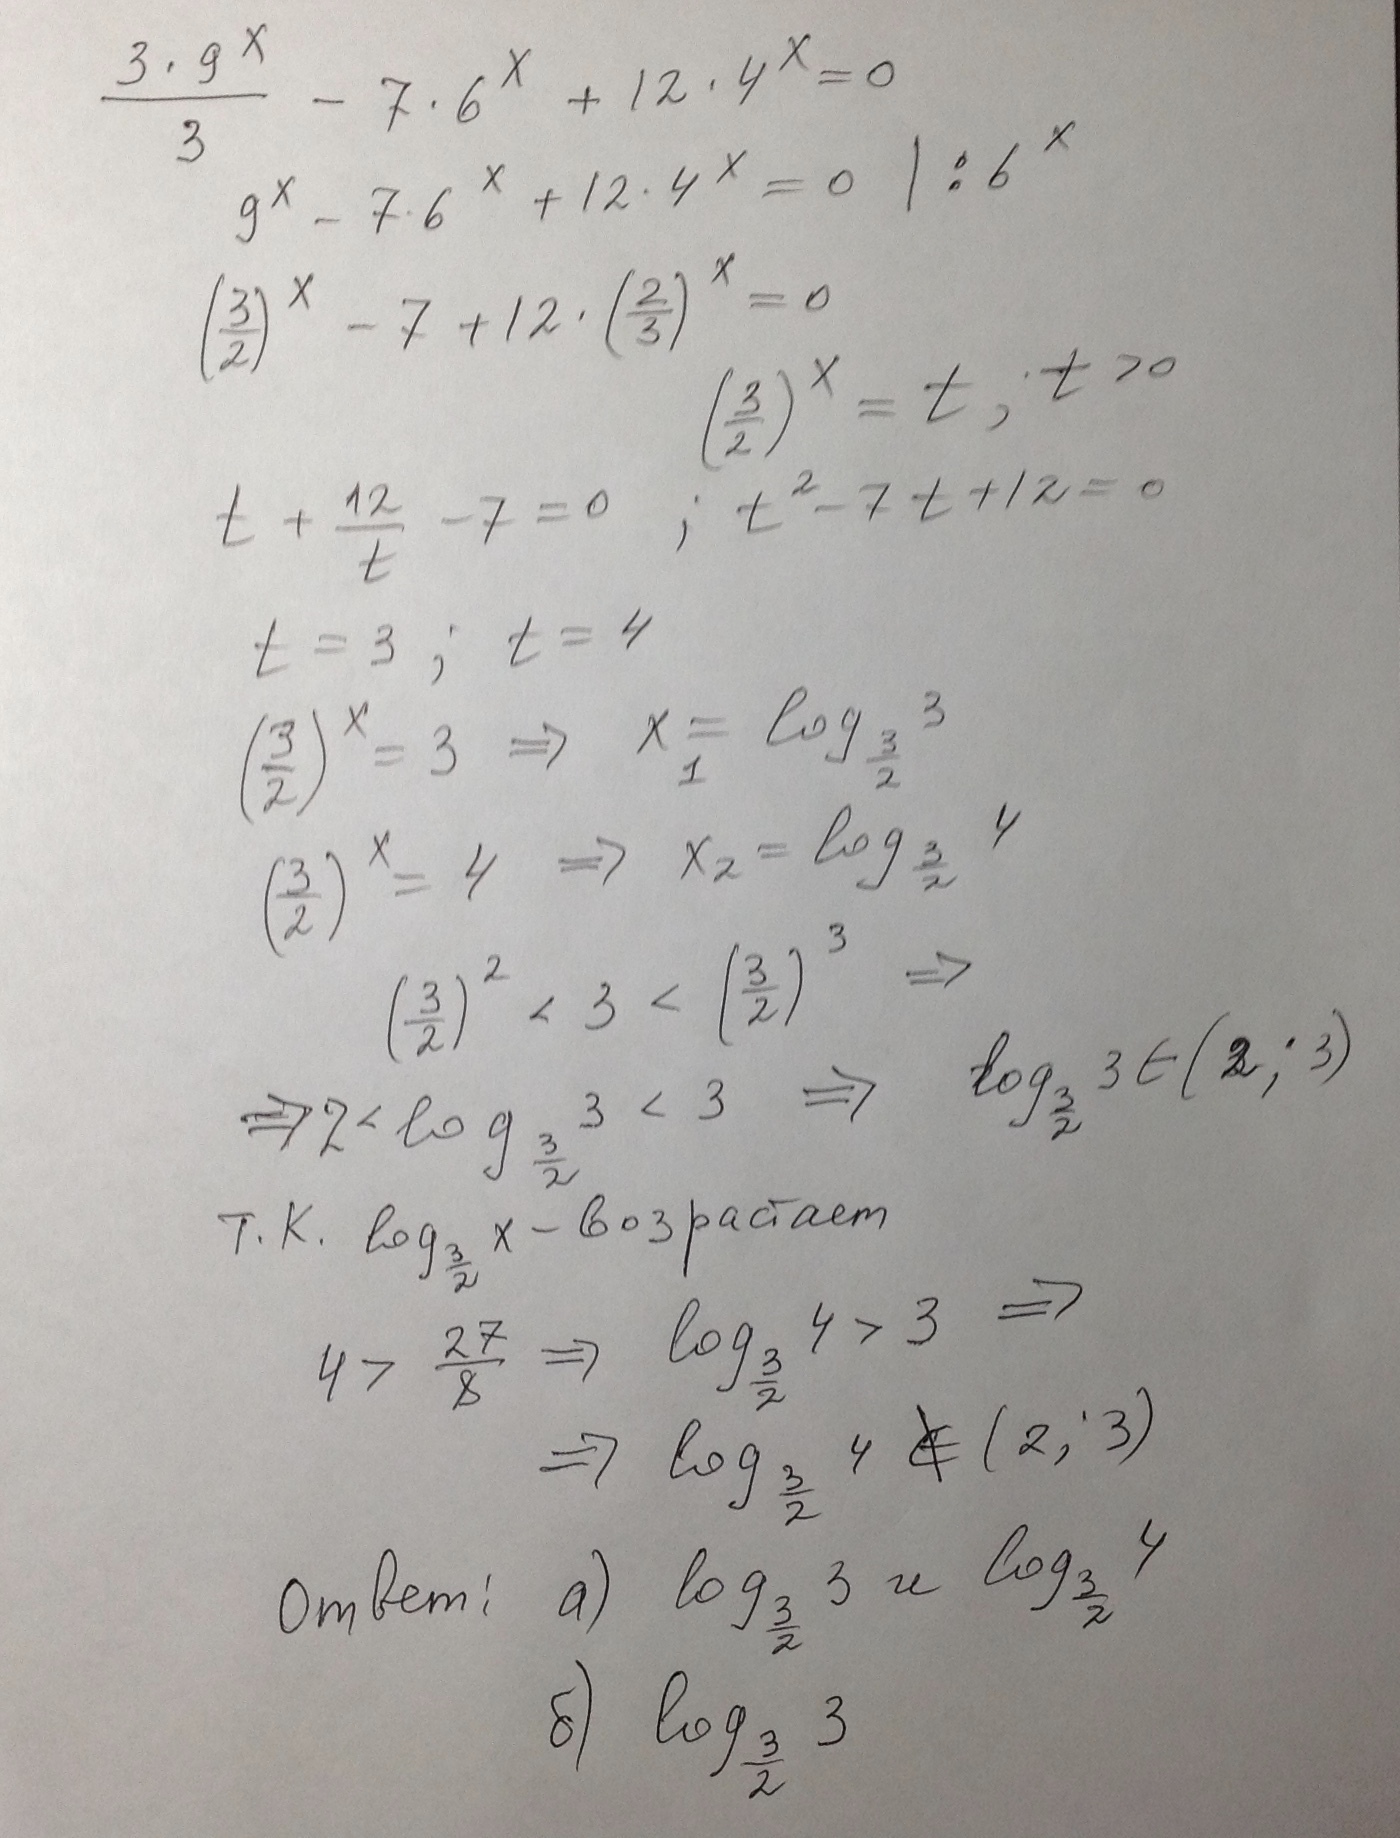 3·9^x/3 − 7·6^x + 12·4^x = 0
9^x − 7·6^x + 12·4^x = 0 | : 6^x
(3/2)^x − 7 + 12·(2/3)^x = 0
(3/2)^x = t; t > 0
t + 12/t − 7 = 0 ; t² − 7t + 12 = 0
t = 3 ; t = 4
(3/2)^x = 3 ⇒ x₁ = log_{3/2} 3
(3/2)^x = 4 ⇒ x₂ = log_{3/2} 4
(3/2)² < 3 < (3/2)³ ⇒
⇒ 2 < log_{3/2} 3 < 3 ⇒ log_{3/2} 3 ∈ (2; 3)
Т.К. log_{3/2} x – возрастает
4 > 27/8 ⇒ log_{3/2} 4 > 3 ⇒
⇒ log_{3/2} 4 ∉ (2; 3)
Ответ: а) log_{3/2} 3 и log_{3/2} 4
б) log_{3/2} 3